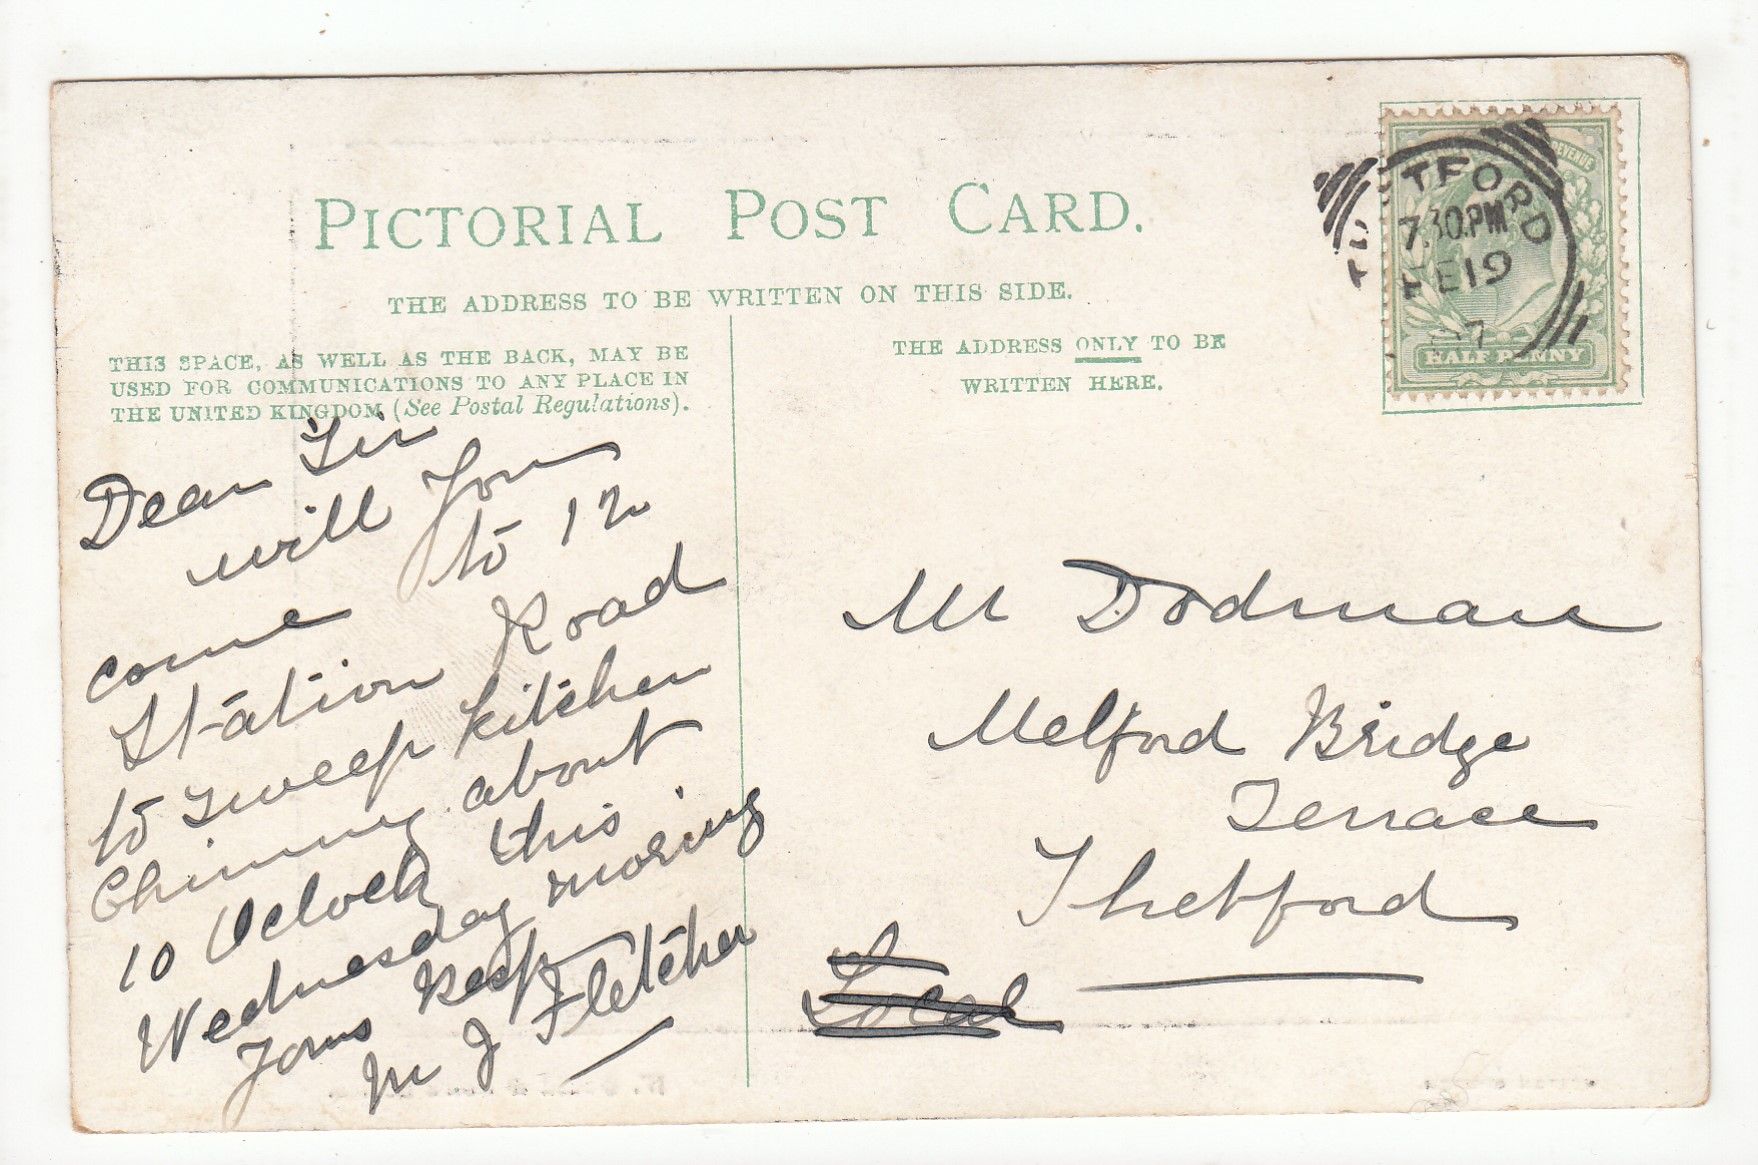 PICTORIAL POST CARD.
THE ADDRESS TO BE WRITTEN ON THIS SIDE.
THIS SPACE, AS WELL AS THE BACK, MAY BE
USED FOR COMMUNICATIONS TO ANY PLACE IN
THE UNITED KINGDOM (See Postal Regulations).
THE ADDRESS ONLY TO BE
WRITTEN HERE.
REVENUE
HALF PENNY
THETFORD
7.30.PM
FE 19
07
Dear Sir
will you
come to 12
Station Road
to sweep kitchen
Chimny about
10 Oclock this
Wednesday moring
Yours Resp
M J Fletcher
Mr Dodman
Melford Bridge
Terrace
Thetford
Local